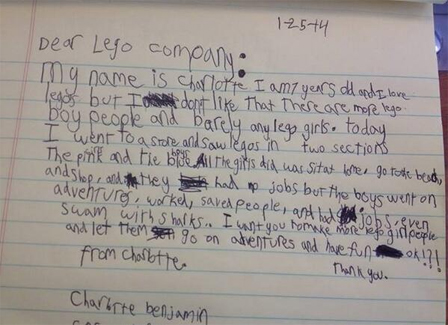 1-25-14
Dear Lego company:
My name is Charlotte I am 7 years old and I love
legos but I don't like that There are more lego
boy people and barely any lego girls. today
I went to a store and saw legos in two sections
The pink and the blue. All the girls did was sit at home, go to the beach,
and shop, and they had no jobs but the boys went on
adventures, worked, saved people, and had jobs, even
swam with sharks. I want you to make more lego girl people
and let them go on adventures and have fun ok!?!
from Charlotte.
Thank you.
Charlotte benjamin